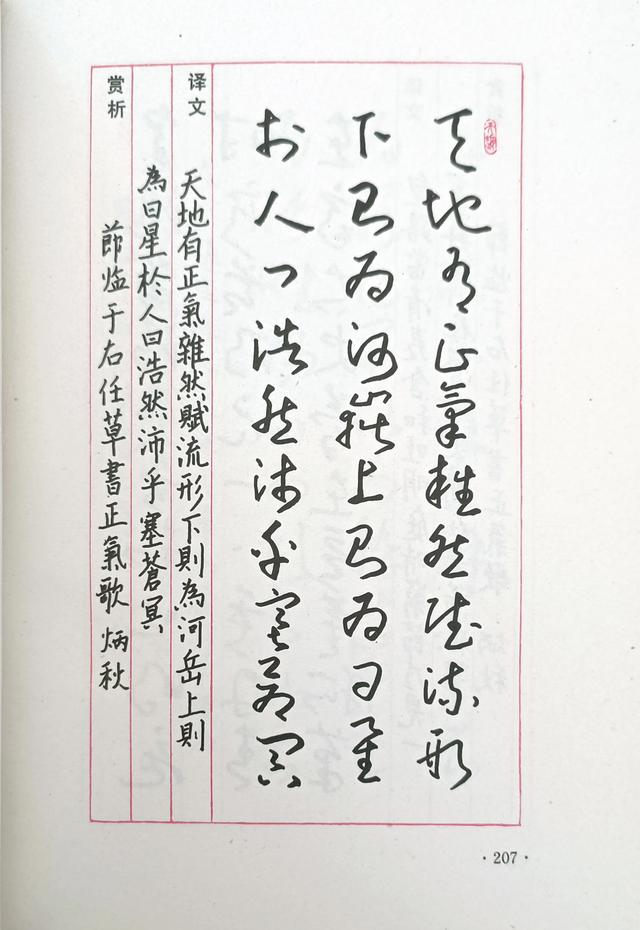 天地有正氣雜然賦流形
下則為河嶽上則為日星
於人曰浩然沛乎塞蒼冥
译文
天地有正氣雜然賦流形下則為河岳上則
為日星於人曰浩然沛乎塞蒼冥
赏析
節临于右任草書正氣歌 炳秋
·207·